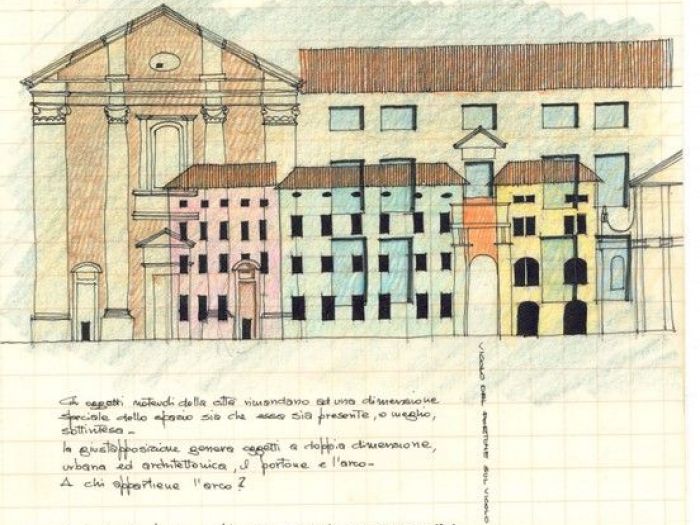 Gli oggetti notevoli della città rimandano ad una dimensione
speciale dello spazio sia che essa sia presente, o meglio,
sottintesa_
la giustapposizione genera oggetti a doppia dimensione,
urbana ed architettonica, il portone e l'arco_
A chi appartiene l'arco?